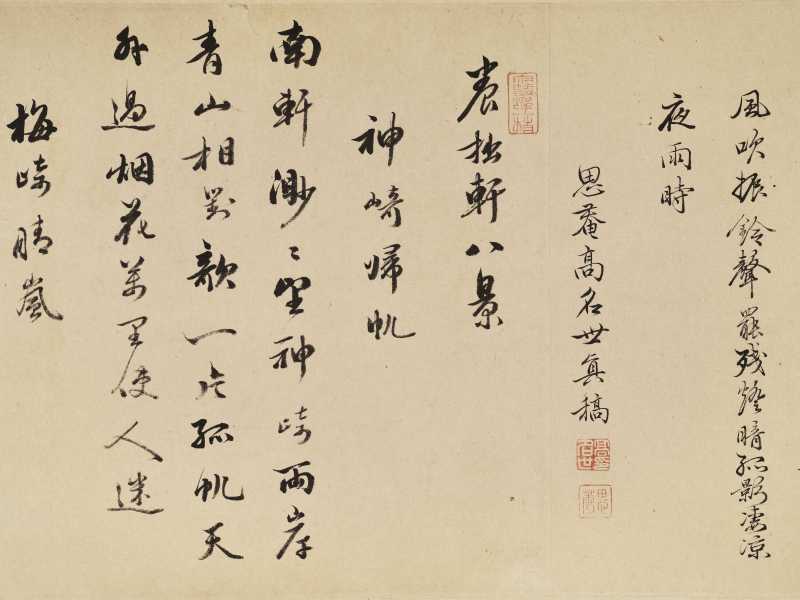 風吹振鈴聲罷残燈暗孤影凄涼
夜雨時
思菴高名世真稿
養拙軒八景
神崎帰帆
南軒渺〻望神崎両岸
青山相對欹一片孤帆天
外過烟花萬里使人迷
梅崎晴嵐